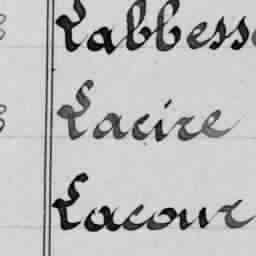 Labbess
Lacire
Lacour